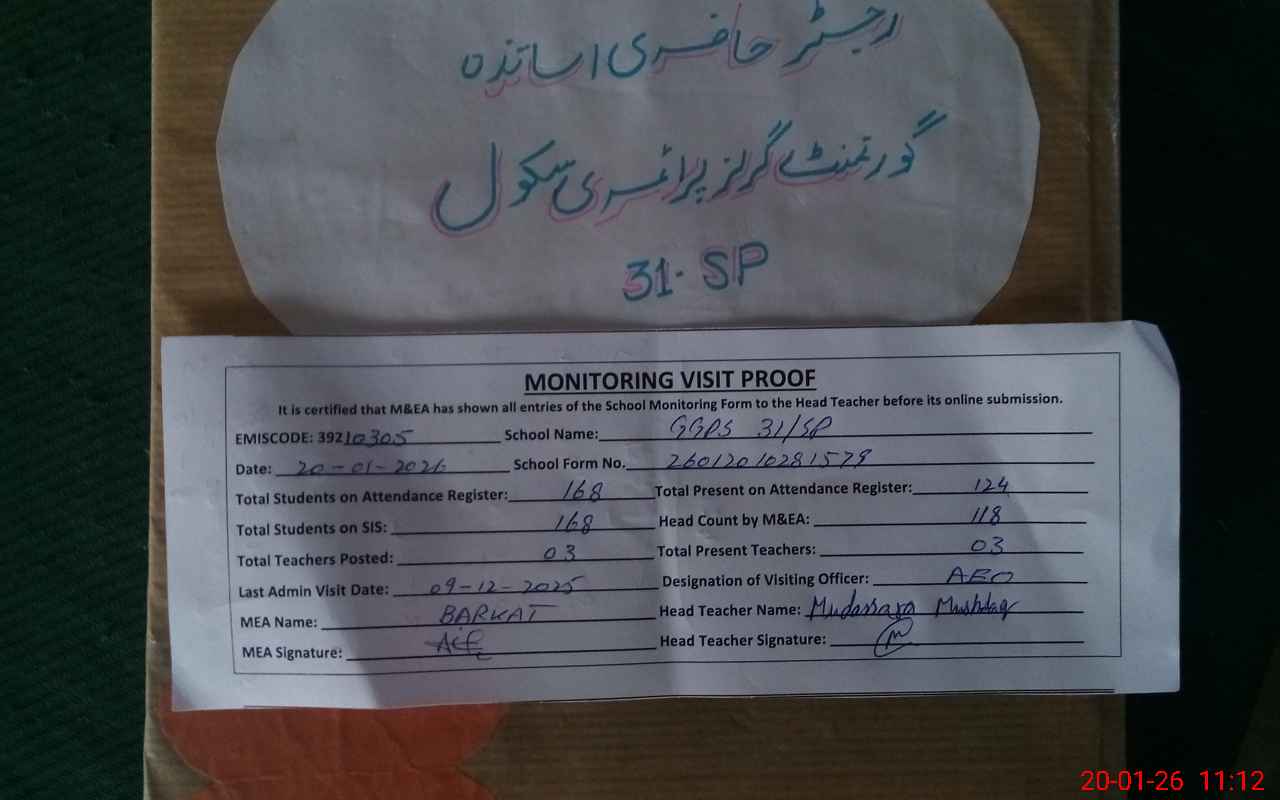 رجسٹر حاضری اساتذہ
گورنمنٹ گرلز پرائمری سکول
31. SP
MONITORING VISIT PROOF
It is certified that M&EA has shown all entries of the School Monitoring Form to the Head Teacher before its online submission.
EMISCODE: 39210305 School Name: GGPS 31/SP
Date: 20-01-2026 School Form No. 26012010281579
Total Students on Attendance Register: 168 Total Present on Attendance Register: 124
Total Students on SIS: 168 Head Count by M&EA: 118
Total Teachers Posted: 03 Total Present Teachers: 03
Last Admin Visit Date: 09-12-2025 Designation of Visiting Officer: AEO
MEA Name: BARKAT Head Teacher Name: Mudassara Mushtaq
MEA Signature: Head Teacher Signature:
20-01-26 11:12